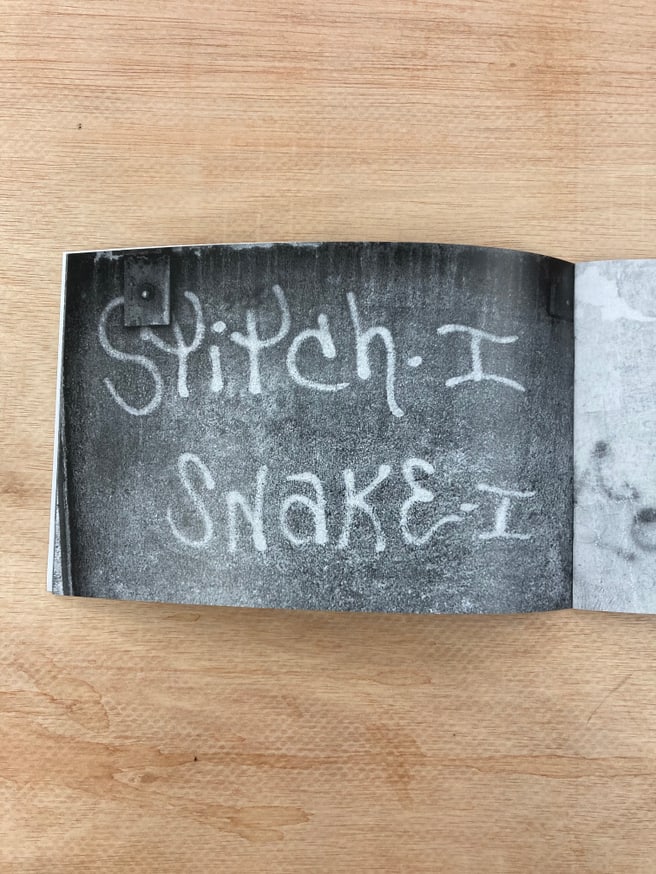 Stitch·I
SNaKE·I